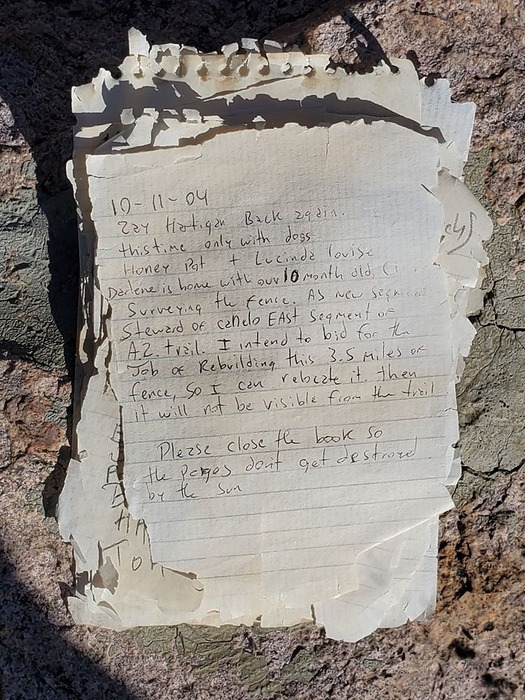 10-11-04
Zay Hartigan Back again.
this time only with dogs
Honey Pot + Lucinda louise
Darlene is home with our 10 month old,
Surveying the fence. As new segment
Steward of canelo EAST segment of
A.Z. trail. I intend to bid for the
Job of Rebuilding this 3.5 miles of
fence, so I can relocate it. then
it will not be visible from the trail
Please close the book so
the pages dont get destroyed
by the sun